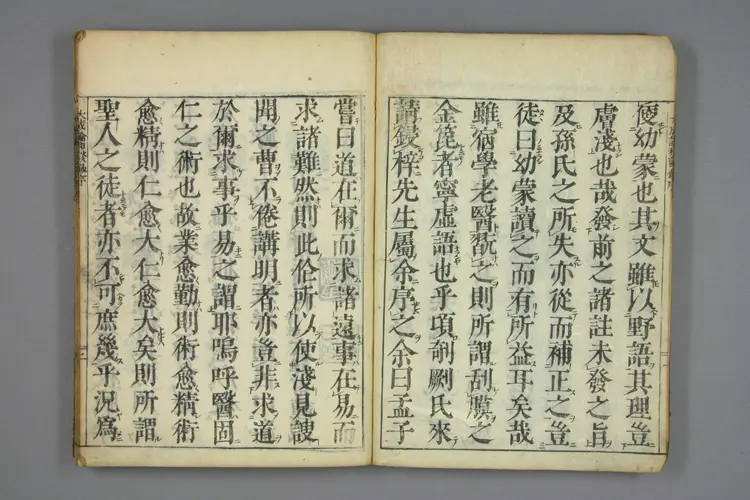 便幼蒙也其文雖以野語其理豈
膚淺也哉發前之諸註未發之旨
及孫氏之所失亦從而補正之豈
徒曰幼蒙讀之而有所益耳矣哉
雖宿學老醫翫之則所謂刮膜之
金箆者寧虛語也乎頃剞劂氏來
請鋟梓先生屬余序之余曰孟子
嘗曰道在爾而求諸遠事在易而
求諸難然則此俗所以使淺見謏
聞之曹不倦講明者亦豈非求道
於爾求事乎易之謂耶嗚呼醫固
仁之術也故業愈勤則術愈精術
愈精則仁愈大仁愈大矣則所謂
聖人之徒者亦不可庶幾乎況爲